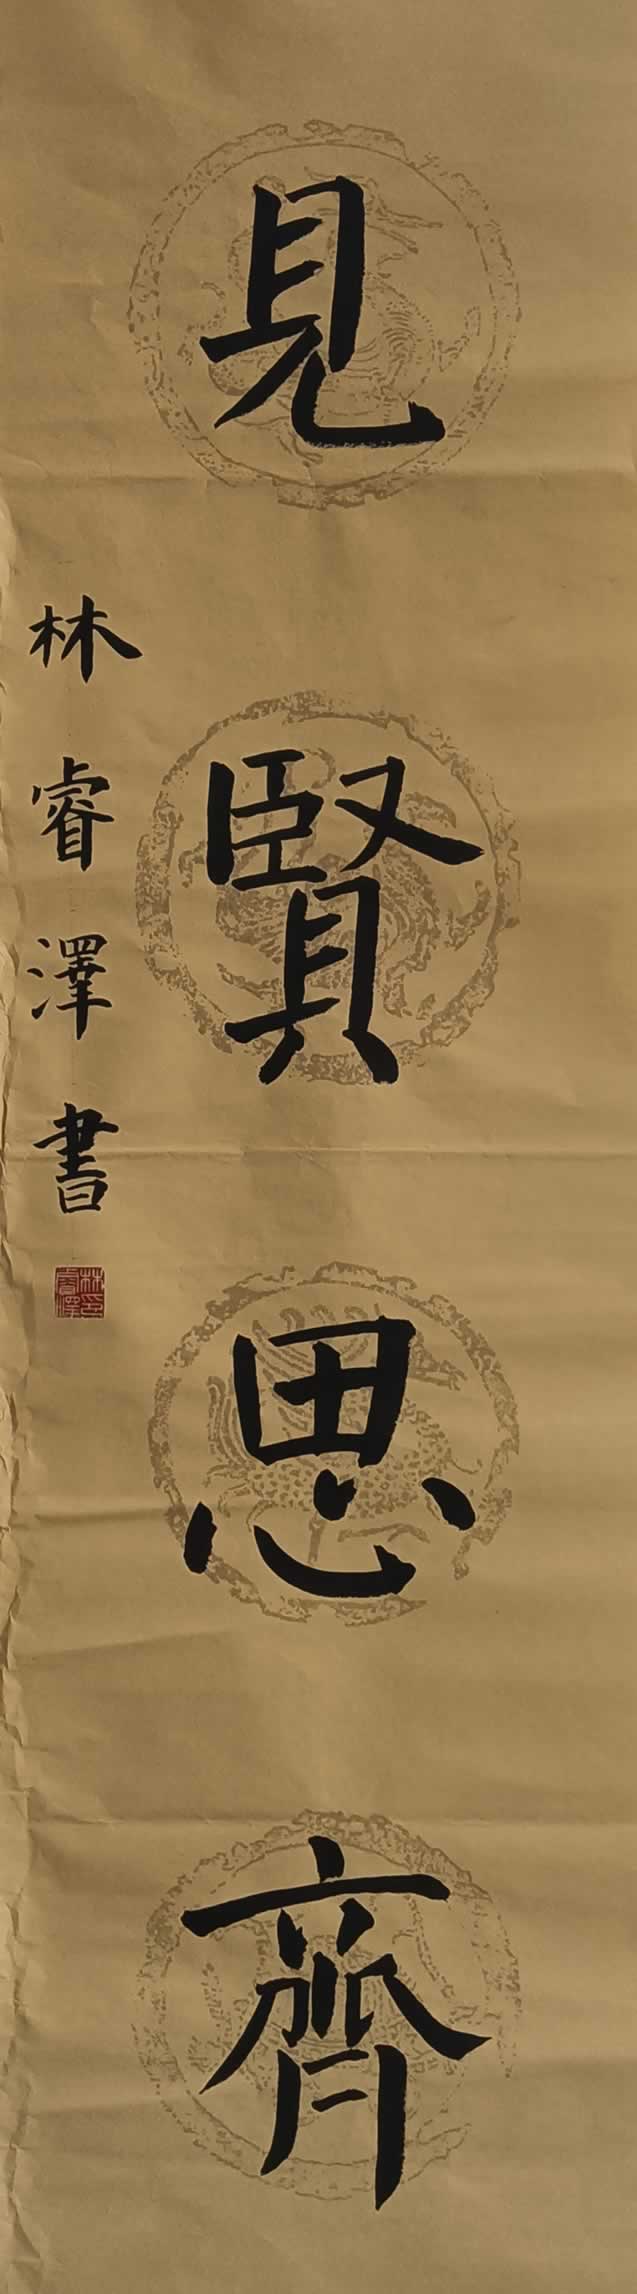 見賢思齊
林睿澤書
林印
睿澤